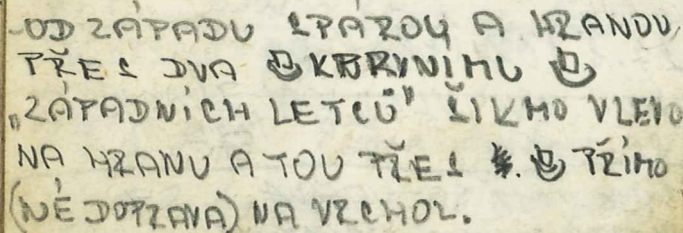 OD ZÁPADU SPÁROU A HRANOU
PŘES DVA K PRVNÍMU
„ZÁPADNÍCH LETCŮ" ŠIKMO VLEVO
NA HRANU A TOU PŘES 4. PŘÍMO
(NE DOPRAVA) NA VRCHOL.